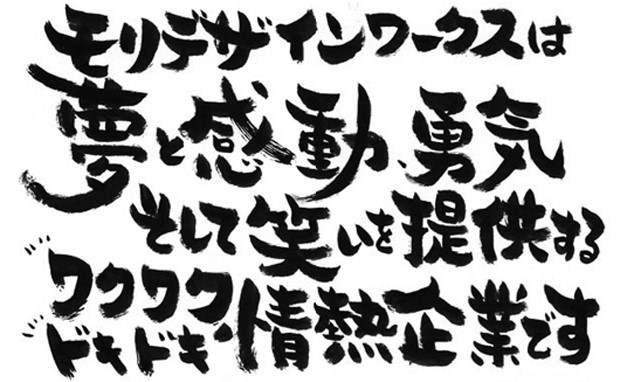 モリデザインワークスは
夢と感動、勇気
そして笑いを提供する
ワクワク
ドキドキ情熱企業です